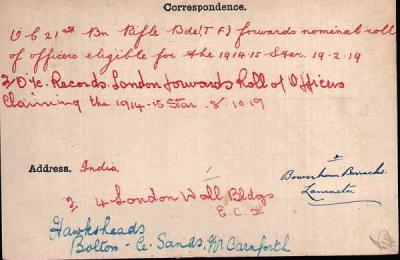 Correspondence.
O C 21st Bn Rifle Bde (T F) forwards nominal roll
of officers eligible for the 1914-15 Star. 19.2.19
2/ O i/c. Records. London forwards Roll of Officers
Claiming the 1914-15 Star. 8.10.19
Address. India
1/ Bowerham Barracks.
Lancaster
2/ 4 London Wall Bldgs
E.C. 2
Hawksheads
Bolton-le-Sands, Nr Carnforth